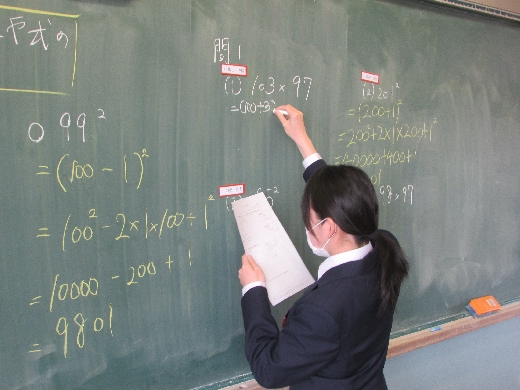 式の
99²
= (100 - 1)²
= 100² - 2×1×100 + 1²
= 10000 - 200 + 1
= 9801
問1
(1) 103×97
= (100+3)
(2) 201²
= (200+1)²
= 200²+2×1×200+1²
= 40000+400+1
98×97